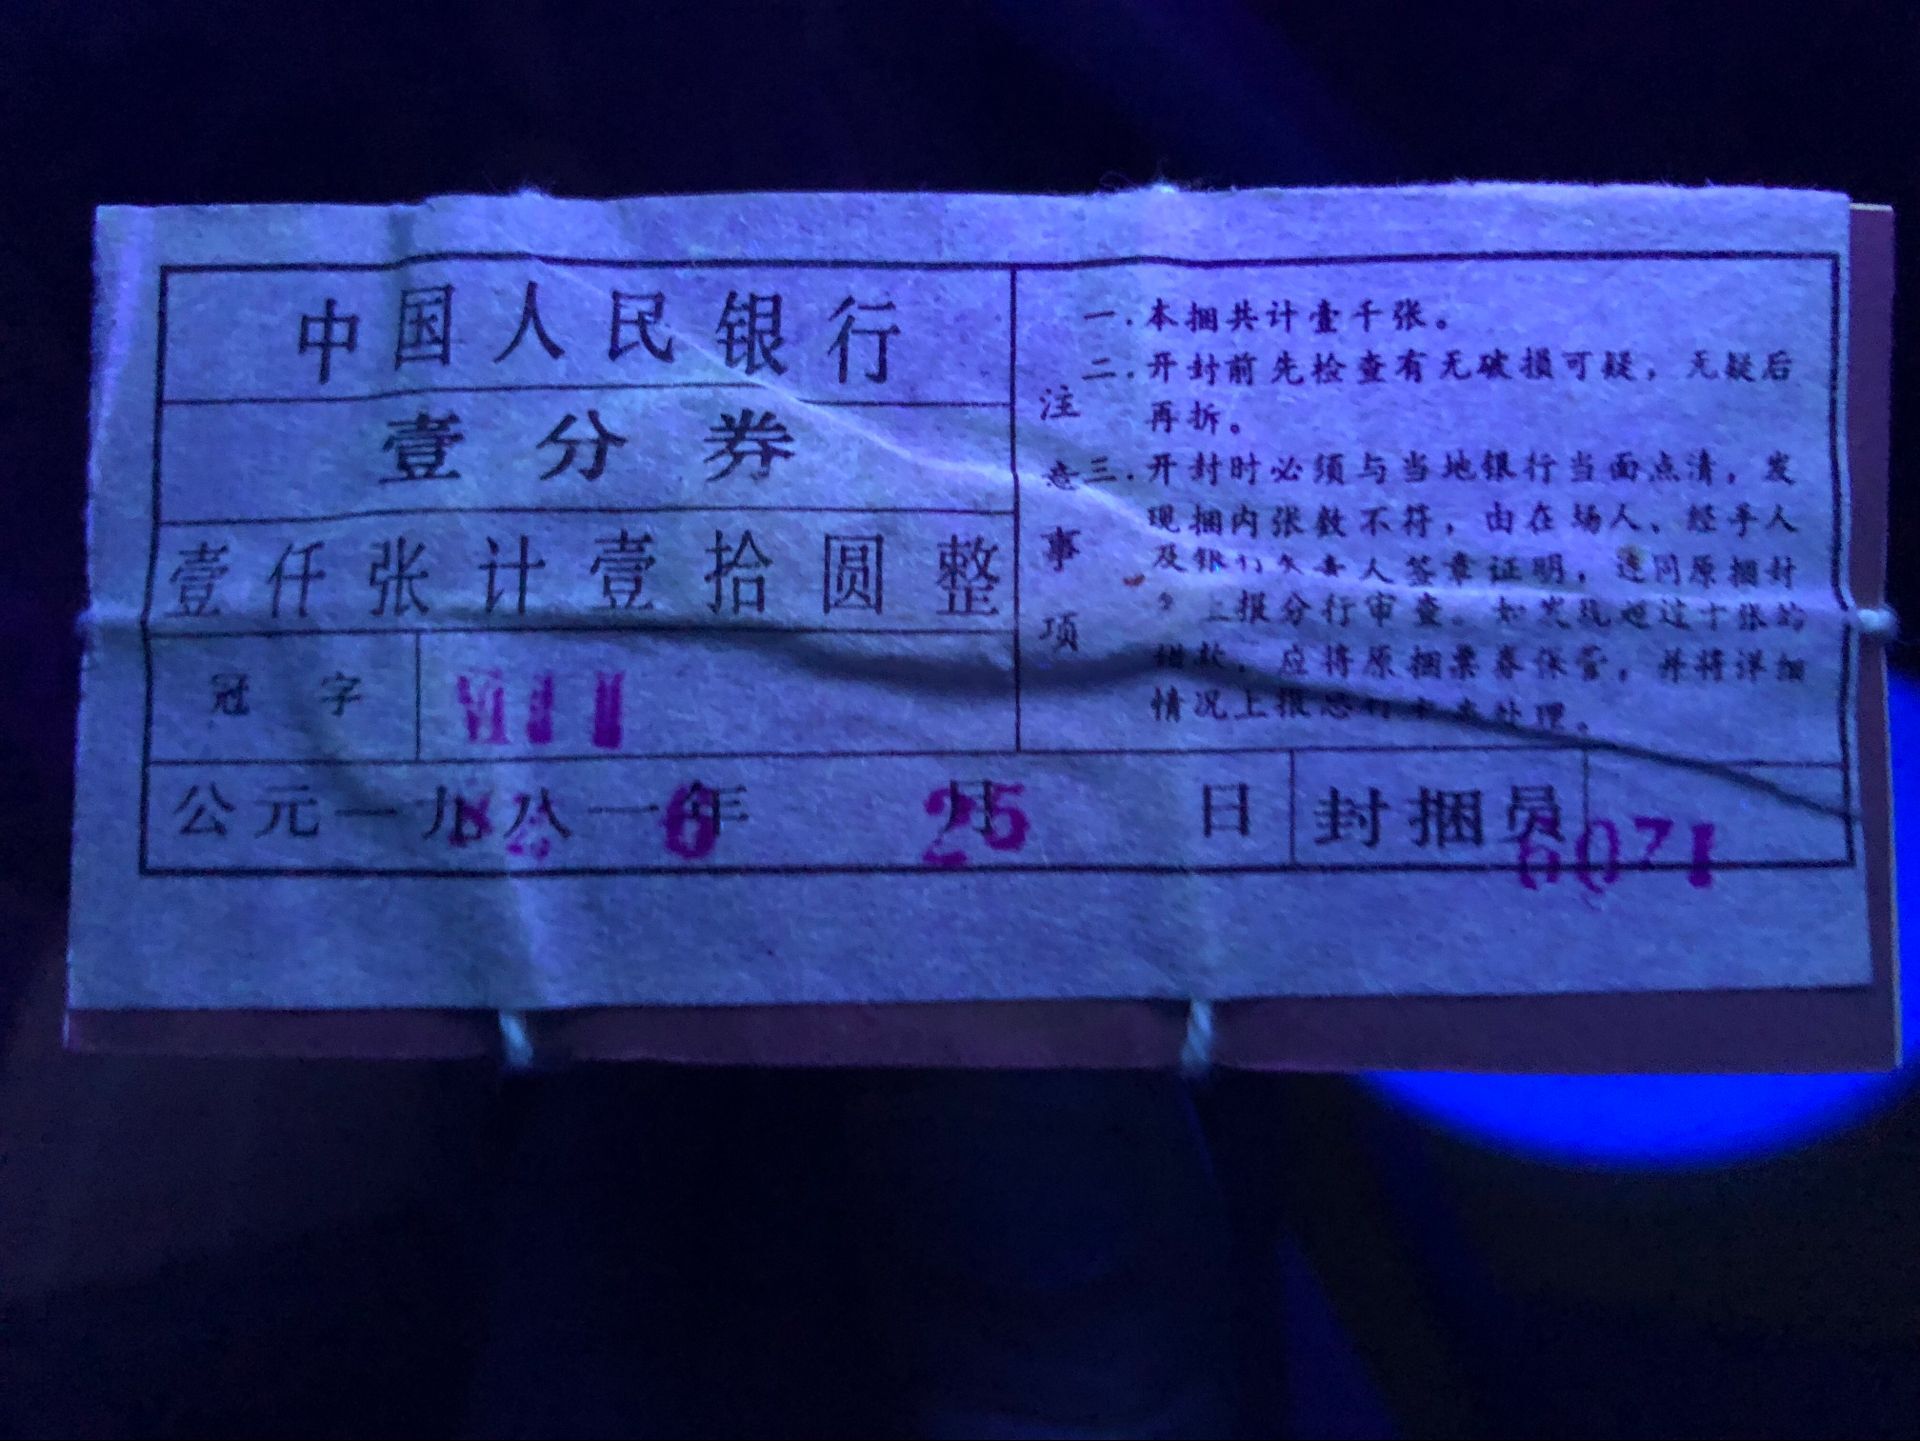 中国人民银行
壹分券
壹仟张计壹拾圆整
冠字
公元一九八一年 月 日 封捆员
6 25 6071
注意事项
一.本捆共计壹千张。
二.开封前先检查有无破损可疑，无疑后
再拆。
三.开封时必须与当地银行当面点清，发
现捆内张数不符，由在场人、经手人
及银行负责人签章证明，连同原捆封
上报分行审查。如发现超过十张的
错款，应将原捆票券保管，并将详细
情况上报总行 处理。